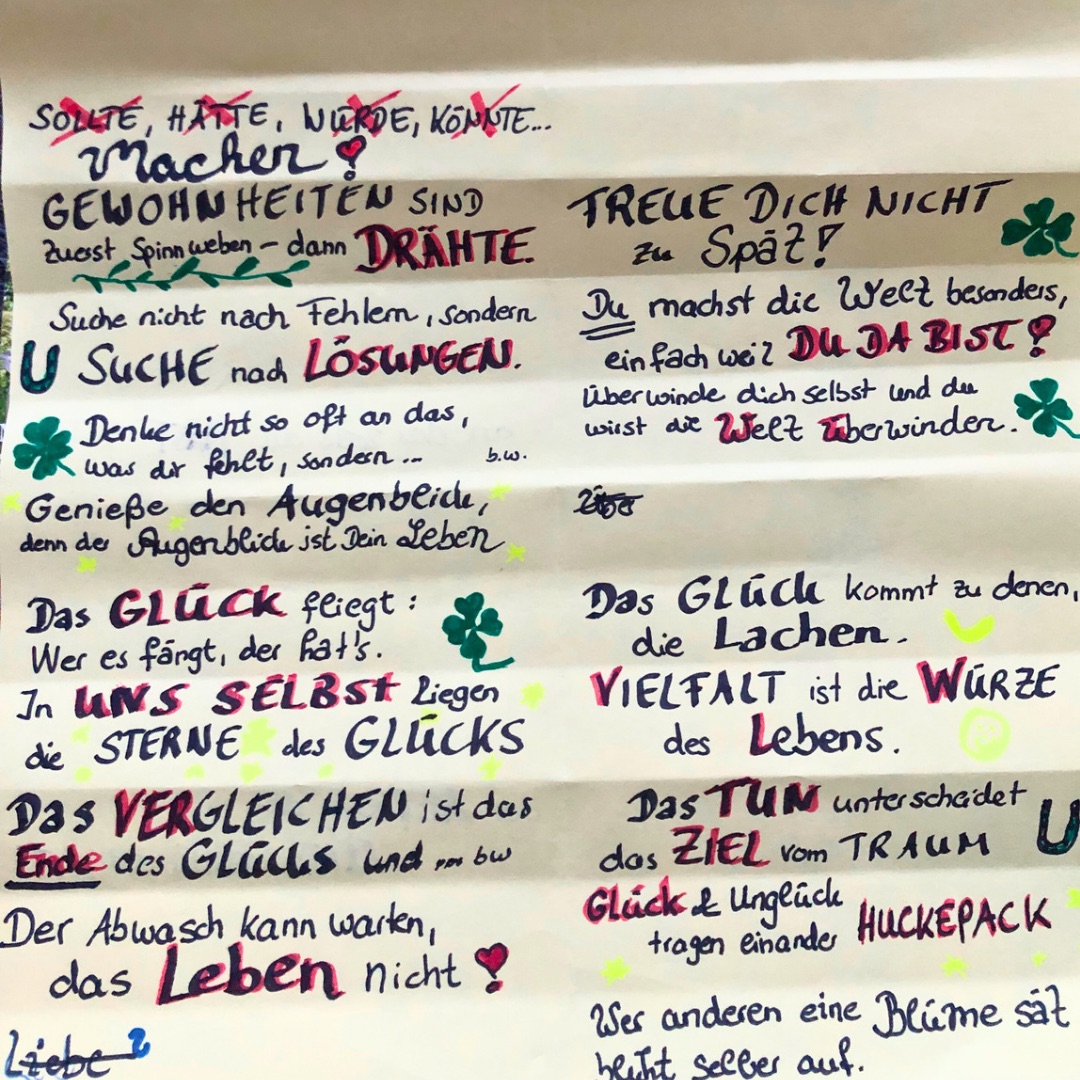 SOLLTE, HÄTTE, WÜRDE, KÖNNTE...
Machen!
GEWOHNHEITEN SIND
zuerst Spinnweben – dann DRÄHTE.
Suche nicht nach Fehlern, sondern
SUCHE nach LÖSUNGEN.
Denke nicht so oft an das,
was dir fehlt, sondern ... b.w.
Genieße den Augenblick,
denn der Augenblick ist Dein Leben
Das GLÜCK fliegt:
Wer es fängt, der hat's.
In UNS SELBST Liegen
die STERNE des GLÜCKS
Das VERGLEICHEN ist das
Ende des GLÜCKS und ... bw
Der Abwasch kann warten,
das Leben nicht!
Liebe
TREUE DICH NICHT
zu Spät!
Du machst die Welt besonders,
einfach weil DU DA BIST!
Überwinde dich selbst und du
wirst die Welt überwinden.
Das GLÜCK kommt zu denen,
die Lachen.
VIELFALT ist die WÜRZE
des Lebens.
Das TUN unterscheidet
das ZIEL vom TRAUM
Glück & Unglück
tragen einander HUCKEPACK
Wer anderen eine Blume sät
blüht selber auf.